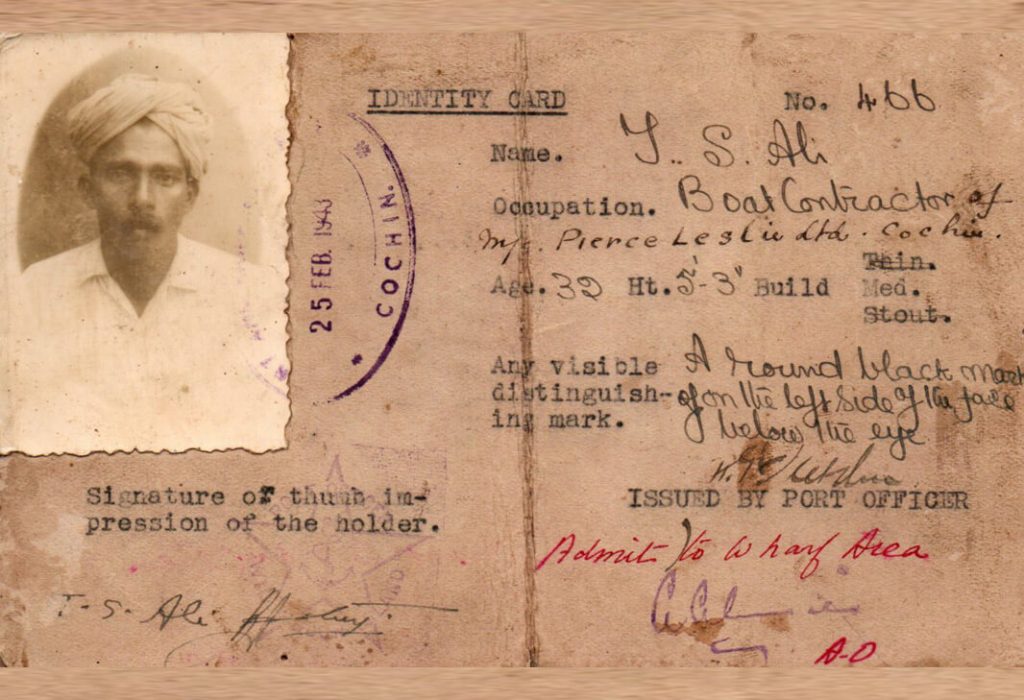 IDENTITY CARD
No. 466
Name. T. S. Ali
Occupation. Boat Contractor of
M/s. Pierce Leslie Ltd. Cochin.
Age. 32 Ht. 5'-3" Build
Thin.
Med.
Stout.
Any visible distinguish-
ing mark.
A round black mark
on the left side of the face
below the eye
25 FEB. 1943
COCHIN.
ISSUED BY PORT OFFICER
Signature of thumb im-
pression of the holder.
Admit to Wharf Area
T. S. Ali
A-O